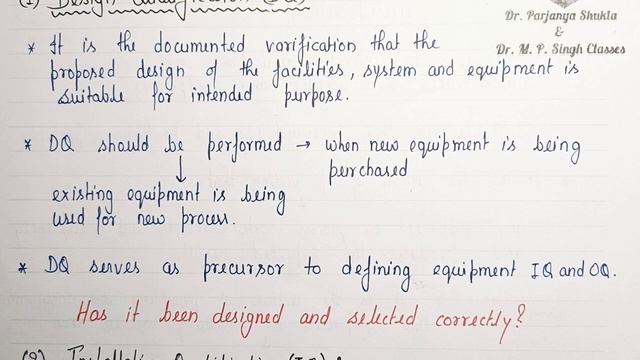 (1) Design Qualification (DQ)
Dr. Parjanya Shukla
&
Dr. M. P. Singh Classes
* It is the documented varification that the
proposed design of the facilities, system and equipment is
suitable for intended purpose.
* DQ should be performed → when new equipment is being
purchased
↓
existing equipment is being
used for new process.
* DQ serves as precursor to defining equipment IQ and OQ.
Has it been designed and selected correctly?